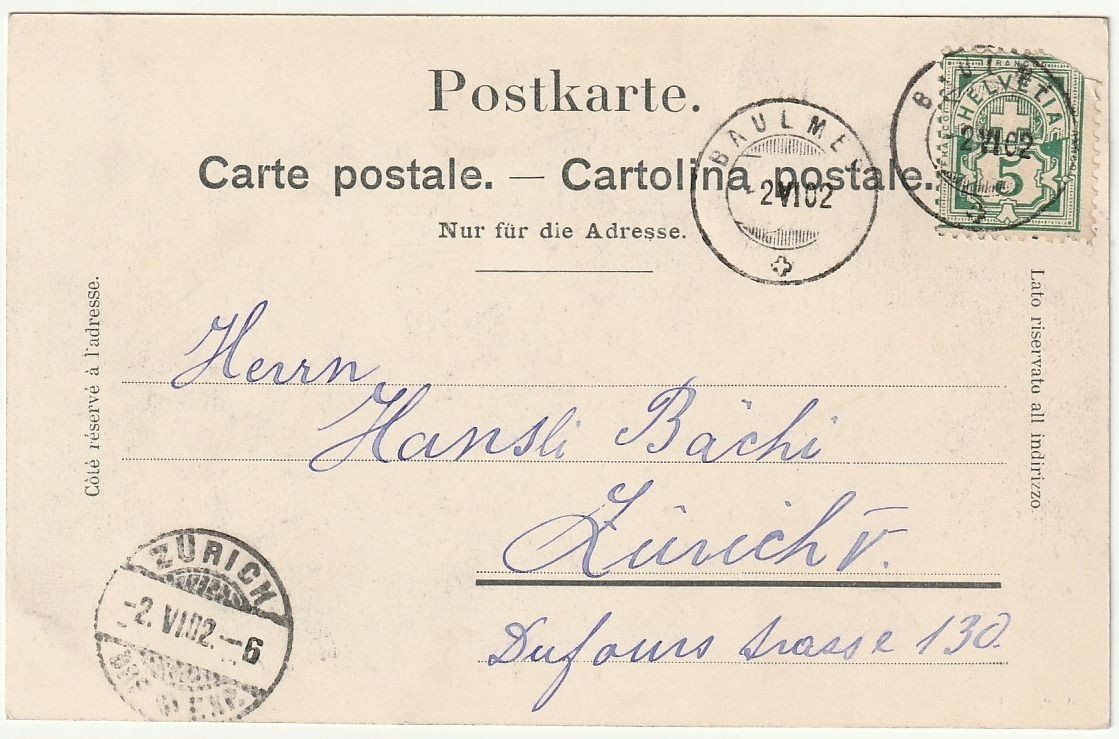 Postkarte.
Carte postale. — Cartolina postale.
Nur für die Adresse.
FRANCO
HELVETIA
5
BAULMES
2 VI 02
BAULMES
- 2 VI 02
Côté réservé à l'adresse.
Lato riservato all indirizzo.
Herrn
Hansli Bächi
Zürich V.
Dufourstrasse 130.
ZÜRICH
-2. VI. 02. - 6
EXP.